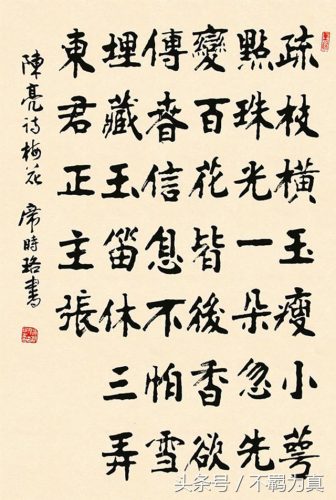 疏枝橫玉瘦小萼
點珠光一朵忽先
變百花皆後香欲
傳春信息不怕雪
埋藏玉笛休三弄
東君正主張
陳亮诗梅花 席時珞書
头条号 / 不羁为真